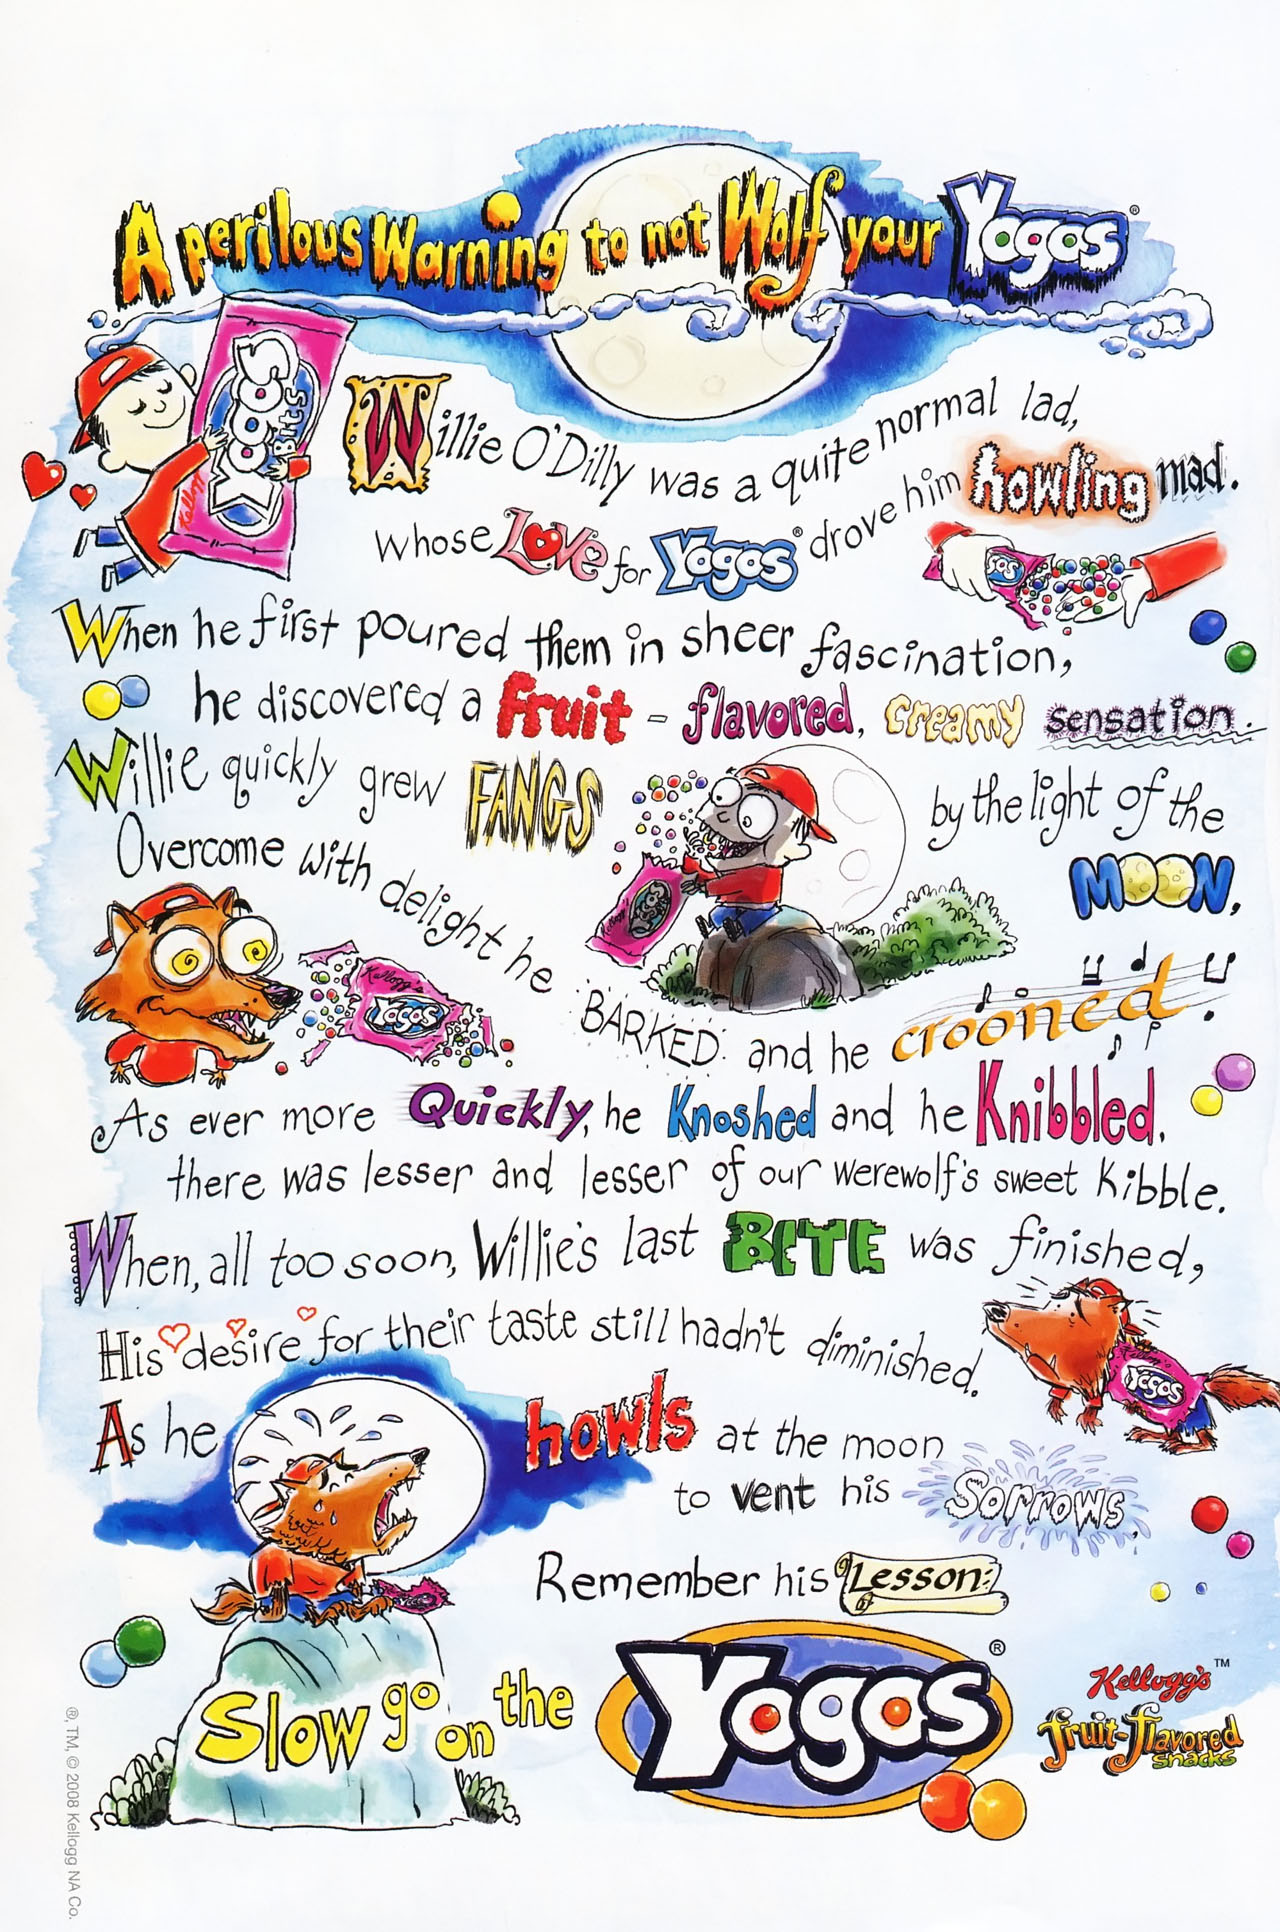 A perilous Warning to not Wolf your Yogos®
Kellogg's
YOGOS
Bits
Willie O'Dilly was a quite normal lad,
whose Love for Yogos® drove him howling mad.
When he first poured them in sheer fascination,
he discovered a fruit-flavored, creamy sensation.
Willie quickly grew FANGS by the light of the MOON,
Overcome with delight he BARKED and he crooned.
Kellogg's
Yogos
As ever more Quickly, he Knoshed and he Knibbled,
there was lesser and lesser of our werewolf's sweet kibble.
When, all too soon, Willie's last BITE was finished,
His desire for their taste still hadn't diminished.
Yogos
As he howls at the moon
to vent his Sorrows,
Remember his Lesson:
Slow go on the Yogos®
Kellogg's™
fruit-flavored
snacks
®, TM, © 2008 Kellogg NA Co.